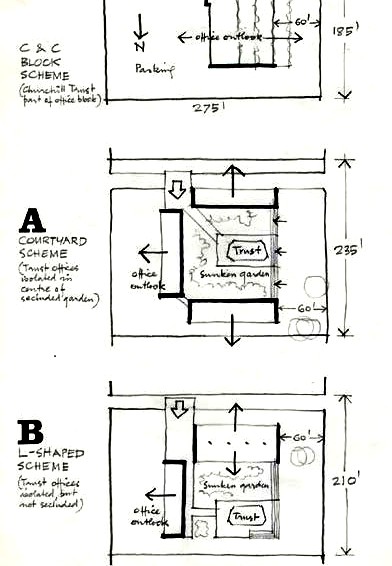 C & C
BLOCK
SCHEME
(Churchill Trust
part of office block)
N
Parking
office outlook
60'
185'
275'
A
COURTYARD
SCHEME
(Trust offices
isolated in
centre of
secluded garden)
office
outlook
Trust
Sunken garden
60'
235'
B
L-SHAPED
SCHEME
(Trust offices
isolated but
not secluded)
office
outlook
Sunken garden
Trust
60'
210'